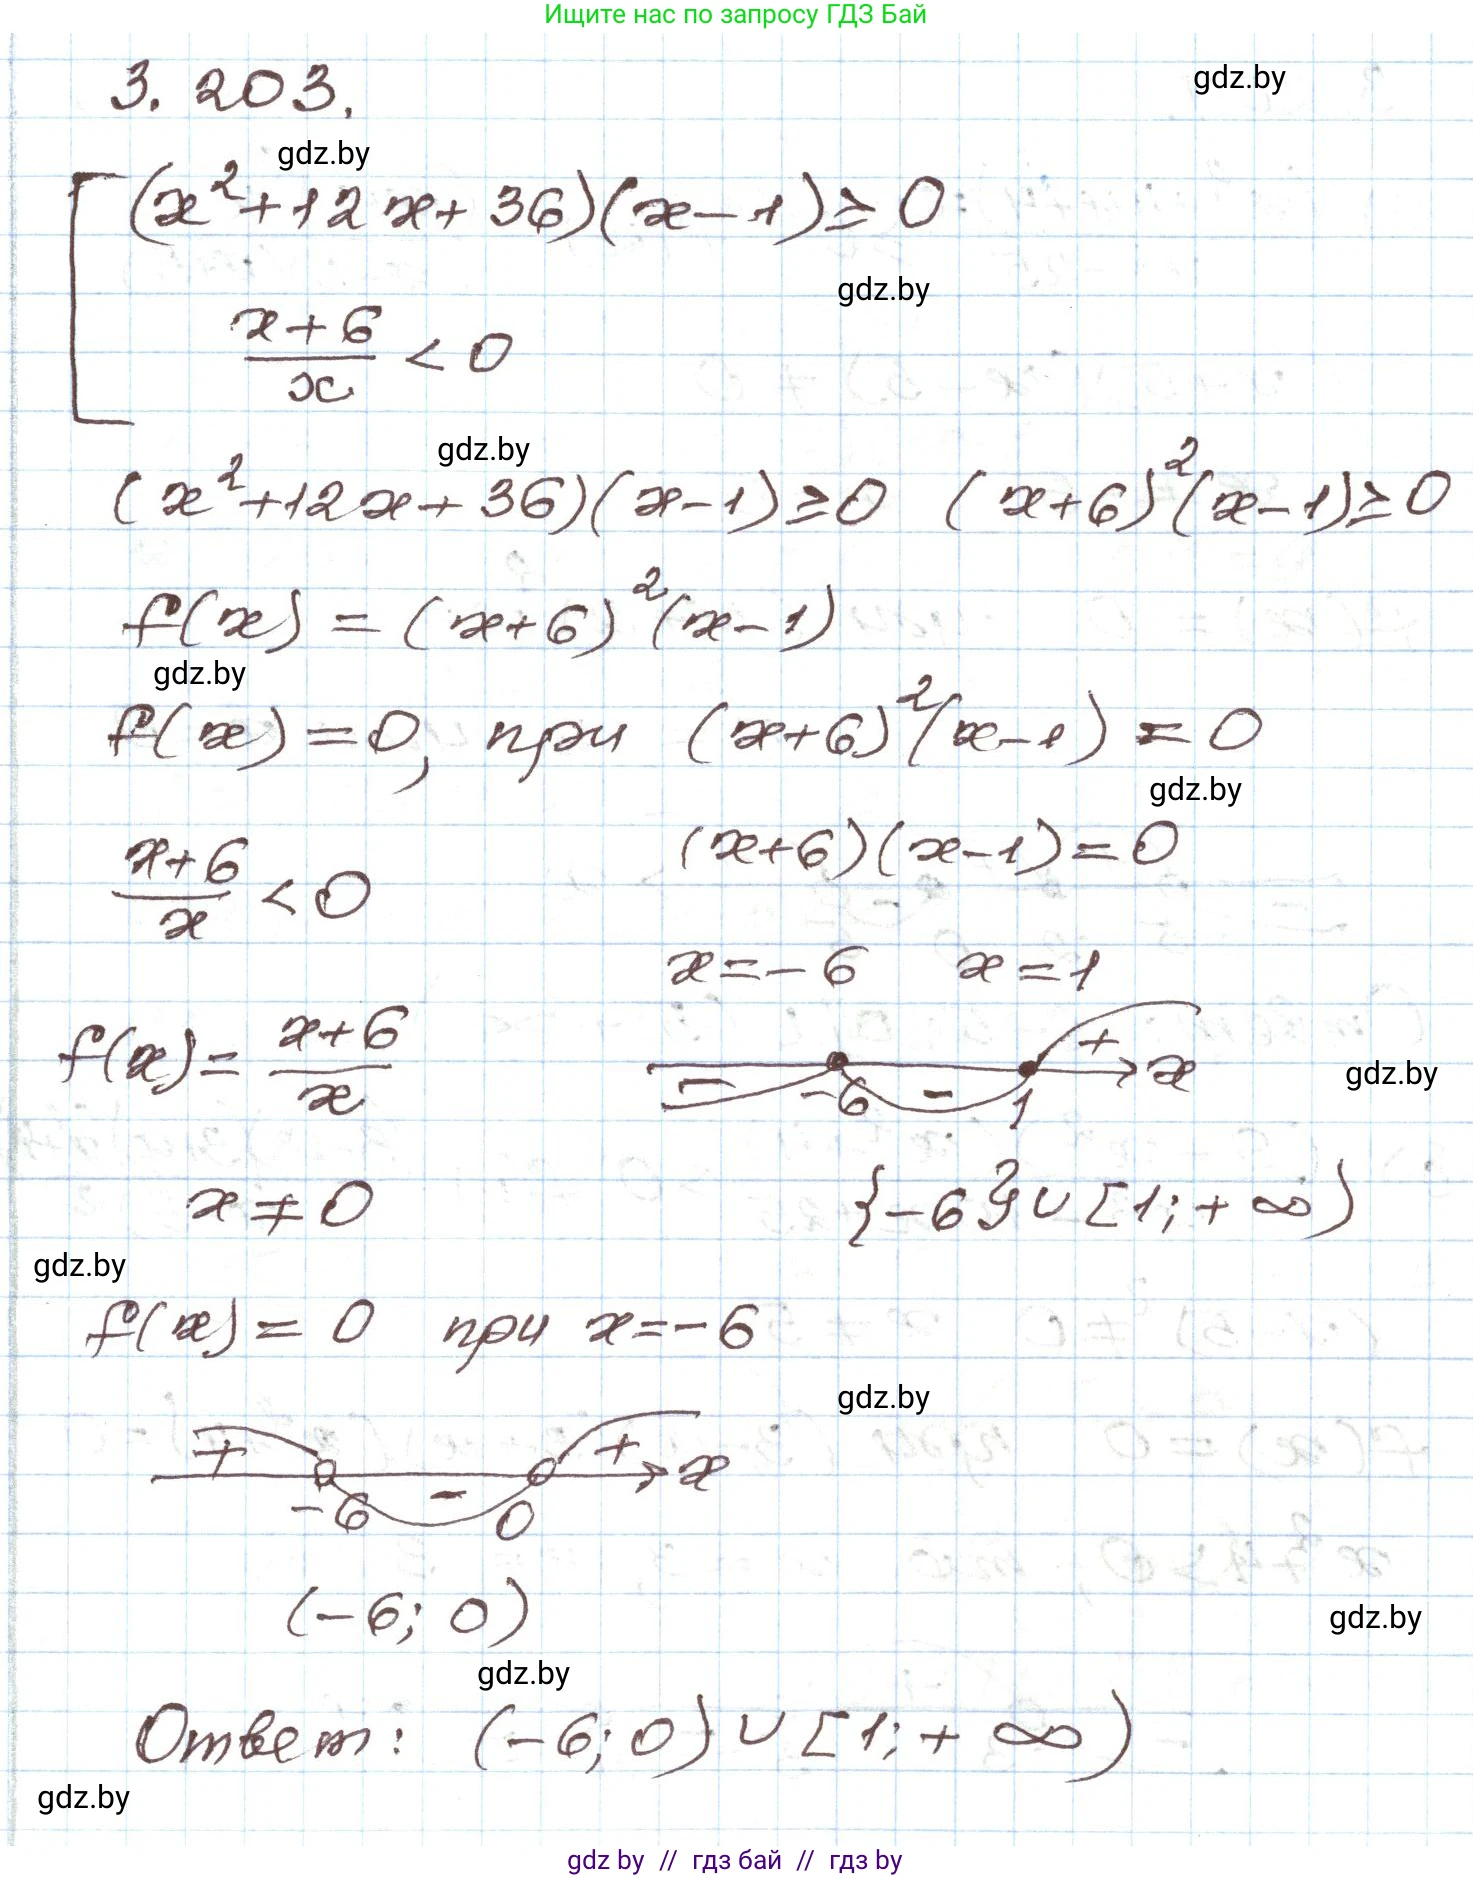 Ищите нас по запросу ГДЗ Бай
3. 203.
gdz.by
gdz.by
(x²+12x+36)(x-1)≥0
gdz.by
x+6
x
<0
gdz.by
(x²+12x+36)(x-1)≥0 (x+6)²(x-1)≥0
f(x) = (x+6)²(x-1)
gdz.by
f(x)=0, при (x+6)²(x-1)=0
gdz.by
x+6
x
<0
(x+6)(x-1)=0
x=-6 x=1
f(x)=
x+6
x
- -6 - 1 + x
gdz.by
x≠0
{-6}∪[1;+∞)
gdz.by
f(x)=0 при x=-6
gdz.by
+ -6 - 0 + x
(-6; 0)
gdz.by
gdz.by
Ответ: (-6; 0)∪[1;+∞)
gdz.by
gdz by // гдз бай // гдз by